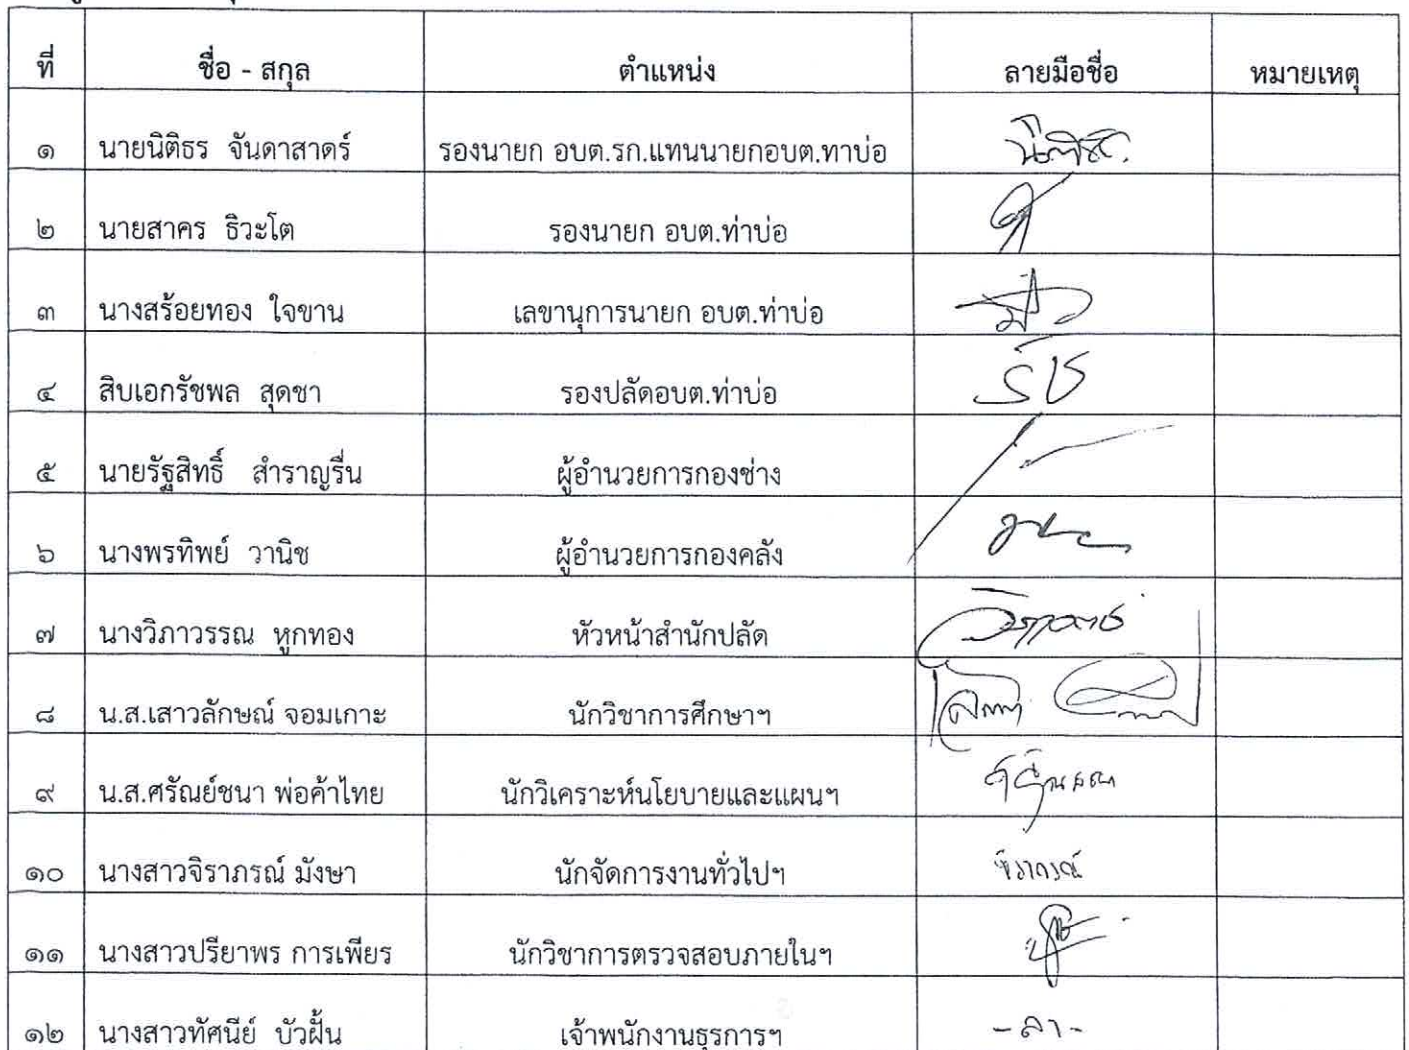 ที่ ชื่อ - สกุล ตำแหน่ง ลายมือชื่อ หมายเหตุ
๑ นายนิติธร จันดาสาดร์ รองนายก อบต.รก.แทนนายกอบต.ทาบ่อ
๒ นายสาคร ธิวะโต รองนายก อบต.ท่าบ่อ
๓ นางสร้อยทอง ใจขาน เลขานุการนายก อบต.ท่าบ่อ
๔ สิบเอกรัชพล สุดชา รองปลัดอบต.ท่าบ่อ
๕ นายรัฐสิทธิ์ สำราญรื่น ผู้อำนวยการกองช่าง
๖ นางพรทิพย์ วานิช ผู้อำนวยการกองคลัง
๗ นางวิภาวรรณ หูกทอง หัวหน้าสำนักปลัด
๘ น.ส.เสาวลักษณ์ จอมเกาะ นักวิชาการศึกษาฯ
๙ น.ส.ศรัณย์ชนา พ่อค้าไทย นักวิเคราะห์นโยบายและแผนฯ
๑๐ นางสาวจิราภรณ์ มังษา นักจัดการงานทั่วไปฯ จิราภรณ์
๑๑ นางสาวปรียาพร การเพียร นักวิชาการตรวจสอบภายในฯ
๑๒ นางสาวทัศนีย์ บัวฝั้น เจ้าพนักงานธุรการฯ -ลา-